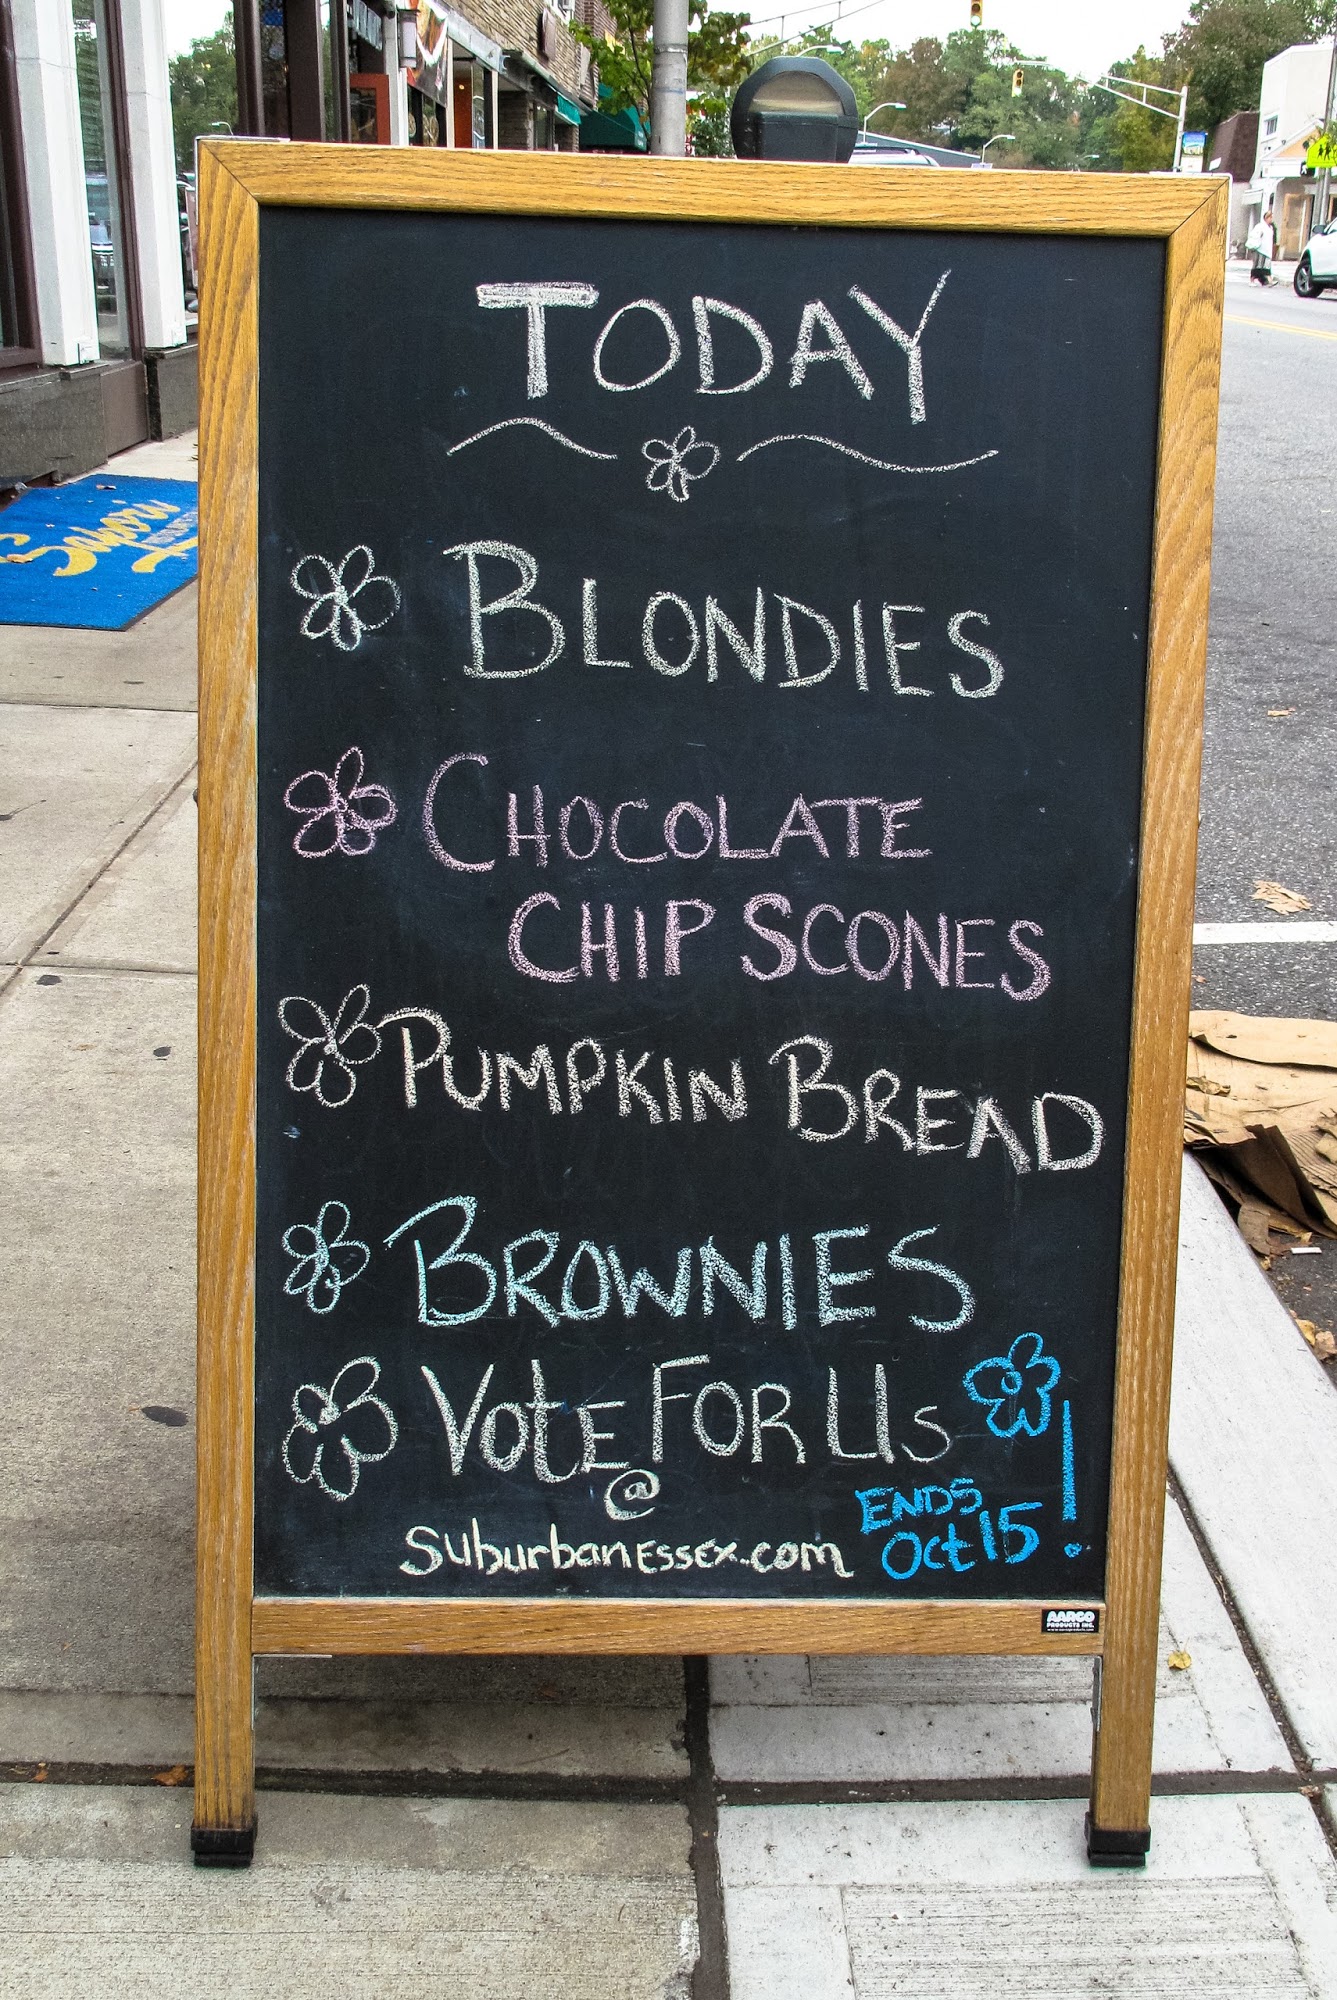 TODAY
BLONDIES
CHOCOLATE
CHIP SCONES
PUMPKIN BREAD
BROWNIES
VOTE FOR US
@
suburbanEssex.com
ENDS
Oct 15!
AARCO
PRODUCTS INC.
Savori